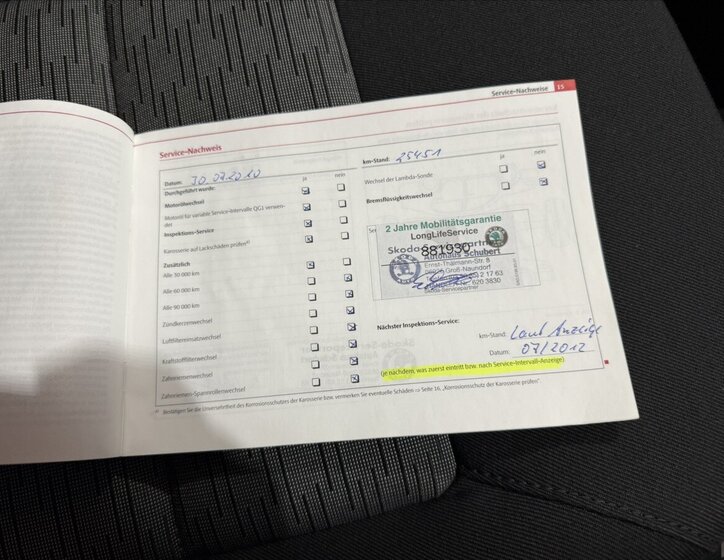 Service-Nachweise 15
Service-Nachweis
Datum: 30.07.2010
ja nein
Durchgeführt wurde:
Motorölwechsel
Motoröl für variable Service-Intervalle QG1 verwen-
det
Inspektions-Service
Karosserie auf Lackschäden prüfen
Zusätzlich
Alle 30 000 km
Alle 60 000 km
Alle 90 000 km
Zündkerzenwechsel
Luftfiltereinsatzwechsel
Kraftstofffilterwechsel
Zahnriemenwechsel
Zahnriemen-Spannrollenwechsel
km-Stand: 25451
ja nein
Wechsel der Lambda-Sonde
Bremsflüssigkeitswechsel
2 Jahre Mobilitätsgarantie
LongLifeService
881930
Autohaus Schubert
Ernst-Thälmann-Str. 8
Groß-Naundorf
Skoda-Servicepartner
Nächster Inspektions-Service:
km-Stand: Laut Anzeige
Datum: 07/2012
(je nachdem, was zuerst eintritt bzw. nach Service-Intervall-Anzeige)
Bestätigen Sie die Unversehrtheit des Korrosionsschutzes der Karosserie bzw. vermerken Sie eventuelle Schäden ⇒ Seite 16, „Korrosionsschutz der Karosserie prüfen".